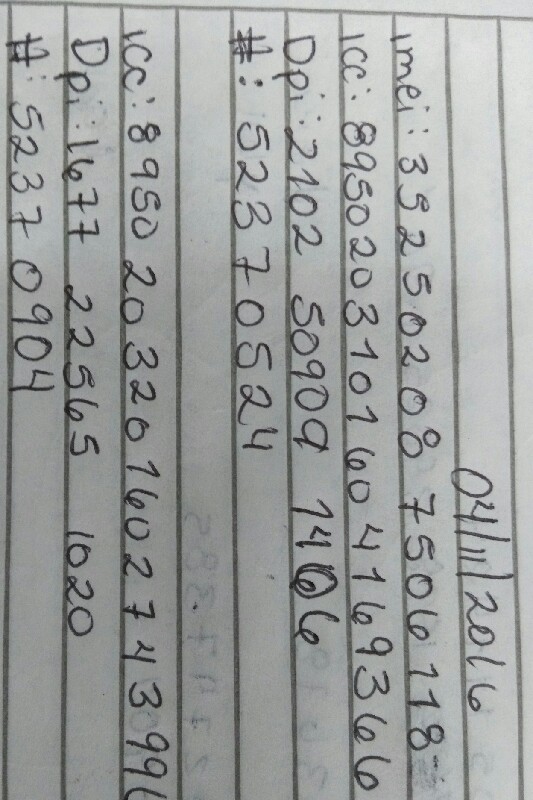 04/11/2016
imei: 352502087506118
Icc: 8950203101604169366
Dpi: 2102 50909 1466
#: 52370524
Icc: 8950203201602743996
Dpi: 1677 22565 1020
#: 52370904